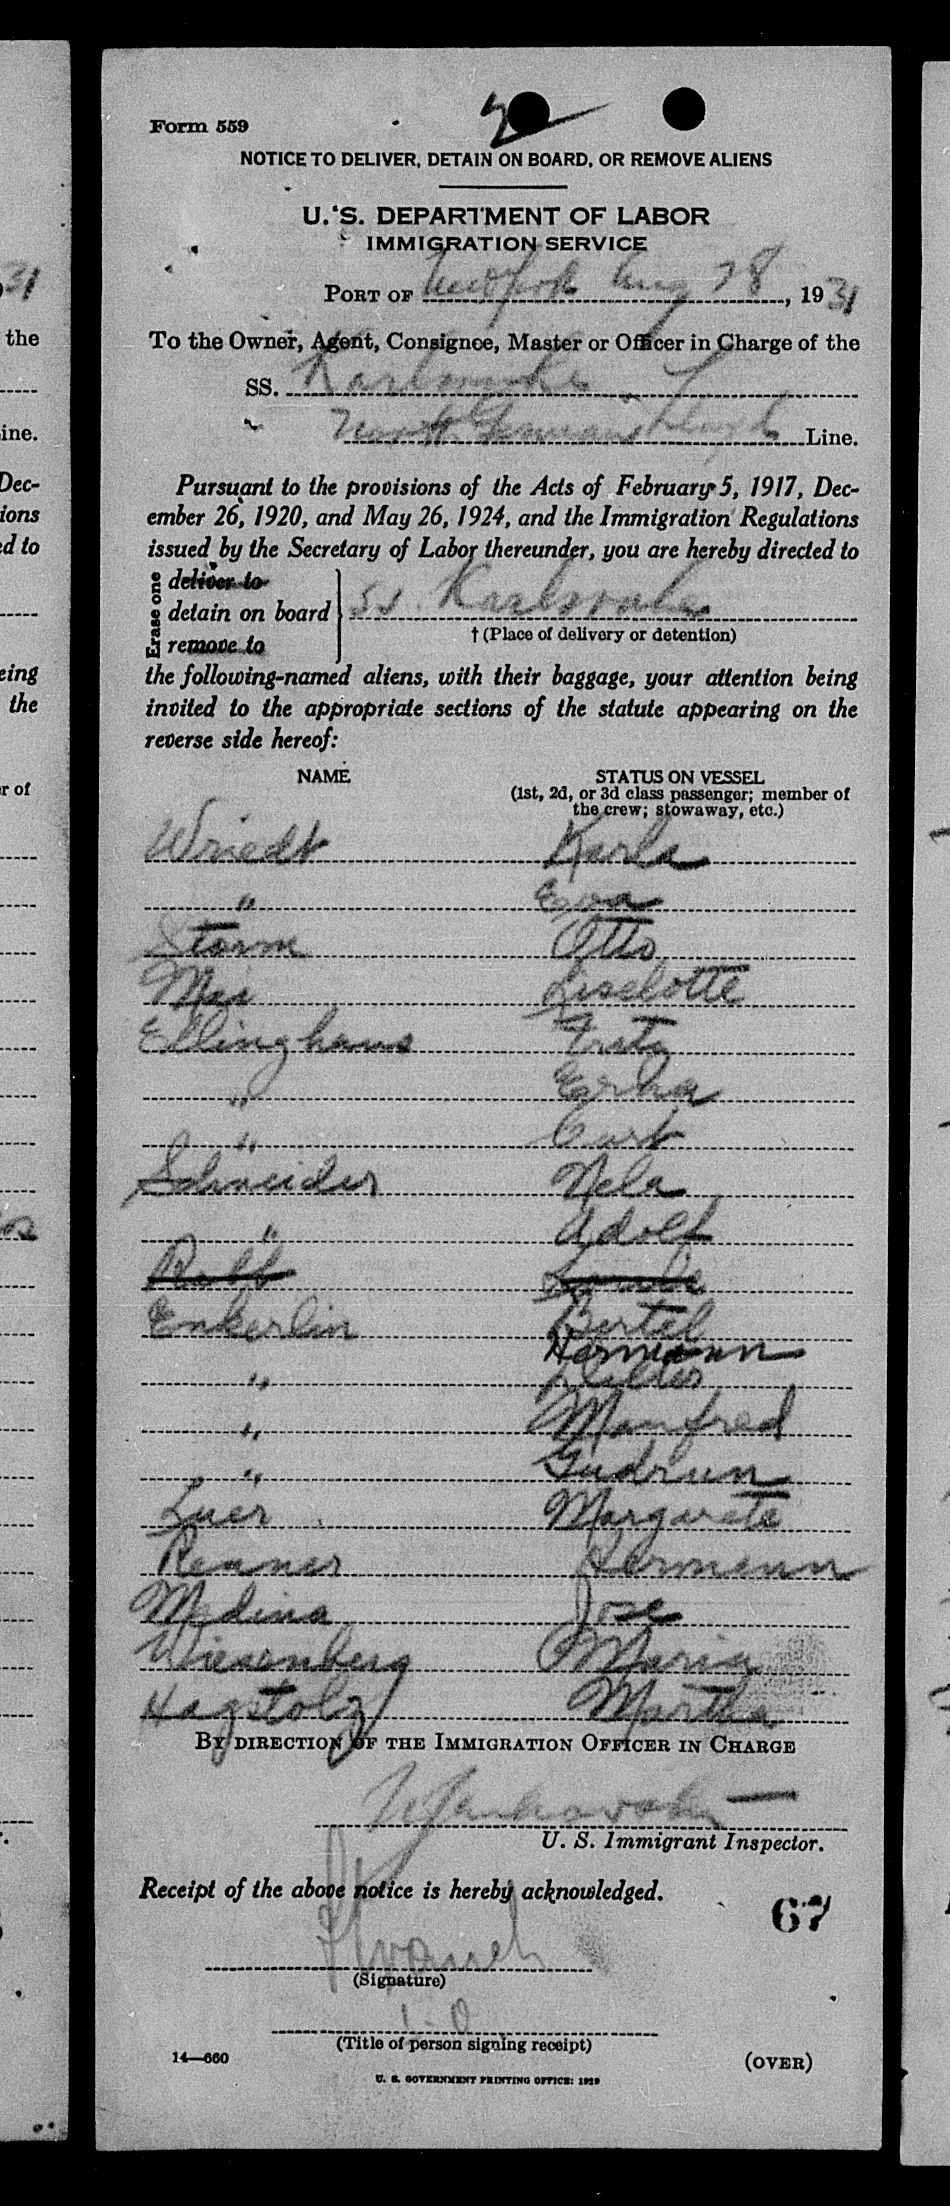 Form 559
2
NOTICE TO DELIVER, DETAIN ON BOARD, OR REMOVE ALIENS
U. S. DEPARTMENT OF LABOR
IMMIGRATION SERVICE
PORT OF New York Aug 28, 1931
To the Owner, Agent, Consignee, Master or Officer in Charge of the
SS. Karlsruhe
North German Lloyd Line.
Pursuant to the provisions of the Acts of February 5, 1917, Dec-
ember 26, 1920, and May 26, 1924, and the Immigration Regulations
issued by the Secretary of Labor thereunder, you are hereby directed to
Erase one
deliver to
detain on board SS. Karlsruhe
remove to
† (Place of delivery or detention)
the following-named aliens, with their baggage, your attention being
invited to the appropriate sections of the statute appearing on the
reverse side hereof:
NAME STATUS ON VESSEL
(1st, 2d, or 3d class passenger; member of
the crew; stowaway, etc.)
Wriedt Karla
" Eva
Storm Otto
Mai Liselotte
Ellinghaus Fritz
" Erna
" Curt
Schneider Nela
" Adolf
Rolf
Enkerlin Bertel
Hermann
" Dieter
" Manfred
" Gudrun
Luer Margarete
Renner Hermann
Medina Jose
Wiesenberg Maria
Hagstolz Martha
BY DIRECTION OF THE IMMIGRATION OFFICER IN CHARGE
U. S. Immigrant Inspector.
Receipt of the above notice is hereby acknowledged.
67
(Signature)
1. O
(Title of person signing receipt)
14—660
(OVER)
U. S. GOVERNMENT PRINTING OFFICE: 1929
31
the
ine.
Dec-
ions
ed to
eing
the
r of